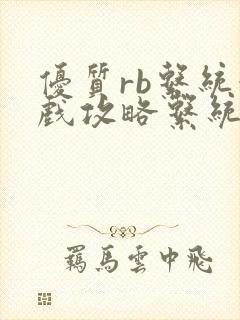 優質rb繫統
戲攻略繫統
羈馬雲中飛